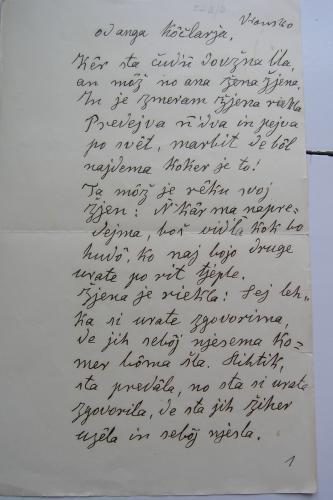 Vransko
odanga kôčlarja.
Kêr sta čudù doužna bla,
an môž no ana žena žjena.
In je zmeram žjena riekla
Predejva n'dva in pejva
po svêt, marbit de bôl
najdema koker je to!
Ta môž je rêku svoj
žjen: N'kâr ma napre-
dejma, boš vidla kok bo
hudô, ko naj bojo druge
urate po rit tjeple.
Žjena je riekla: Sej leh-
ka si urate zgovorima,
de jih sebôj njesema ko-
mer bôma šla. Rihtik,
sta predâla, no sta si urate
zgovorila, de sta jih žiher
uzêla in sebôj njesla.
1